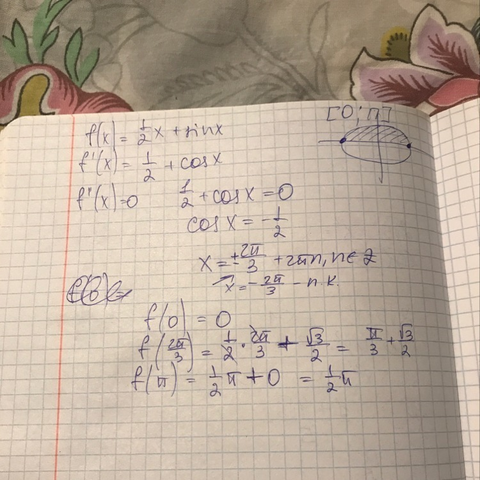 [0; π]
f(x) = 1/2 x + sinx
f'(x) = 1/2 + cosx
f'(x) = 0    1/2 + cosx = 0
cosx = -1/2
x = ± 2π/3 + 2πn, n ∈ Z
x = - 2π/3 - п.к.
f(0) = 0
f(2π/3) = 1/2 · 2π/3 + √3/2 = π/3 + √3/2
f(π) = 1/2 π + 0 = 1/2 π